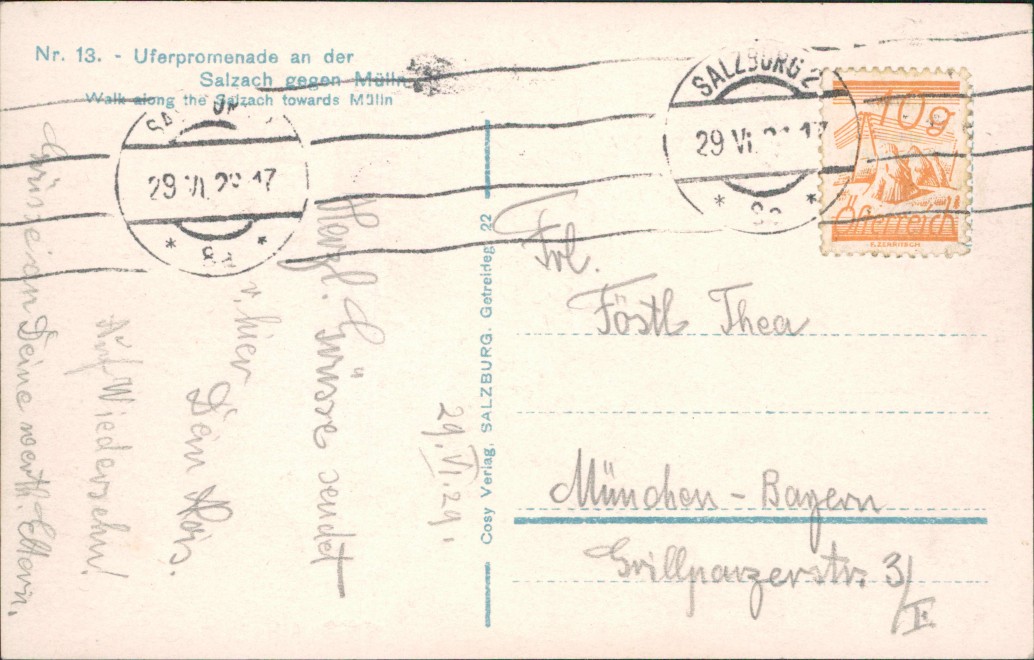 Nr. 13. - Uferpromenade an der
Salzach gegen Mülln
Walk along the Salzach towards Mülln
29 VI 29 17
* 8a *
SALZBURG 2
29 VI. 17
* 8a *
10g
Österreich
Cosy Verlag, SALZBURG. Getreideg. 22
29.VI.29.
Herzl. Grüsse sendet
v. hier
Dein
Auf Wiedersehn!
Grüsse an Deine werth. Eltern.
Frl.
Föstl Thea
München - Bayern
Grillparzerstr. 3/
II.